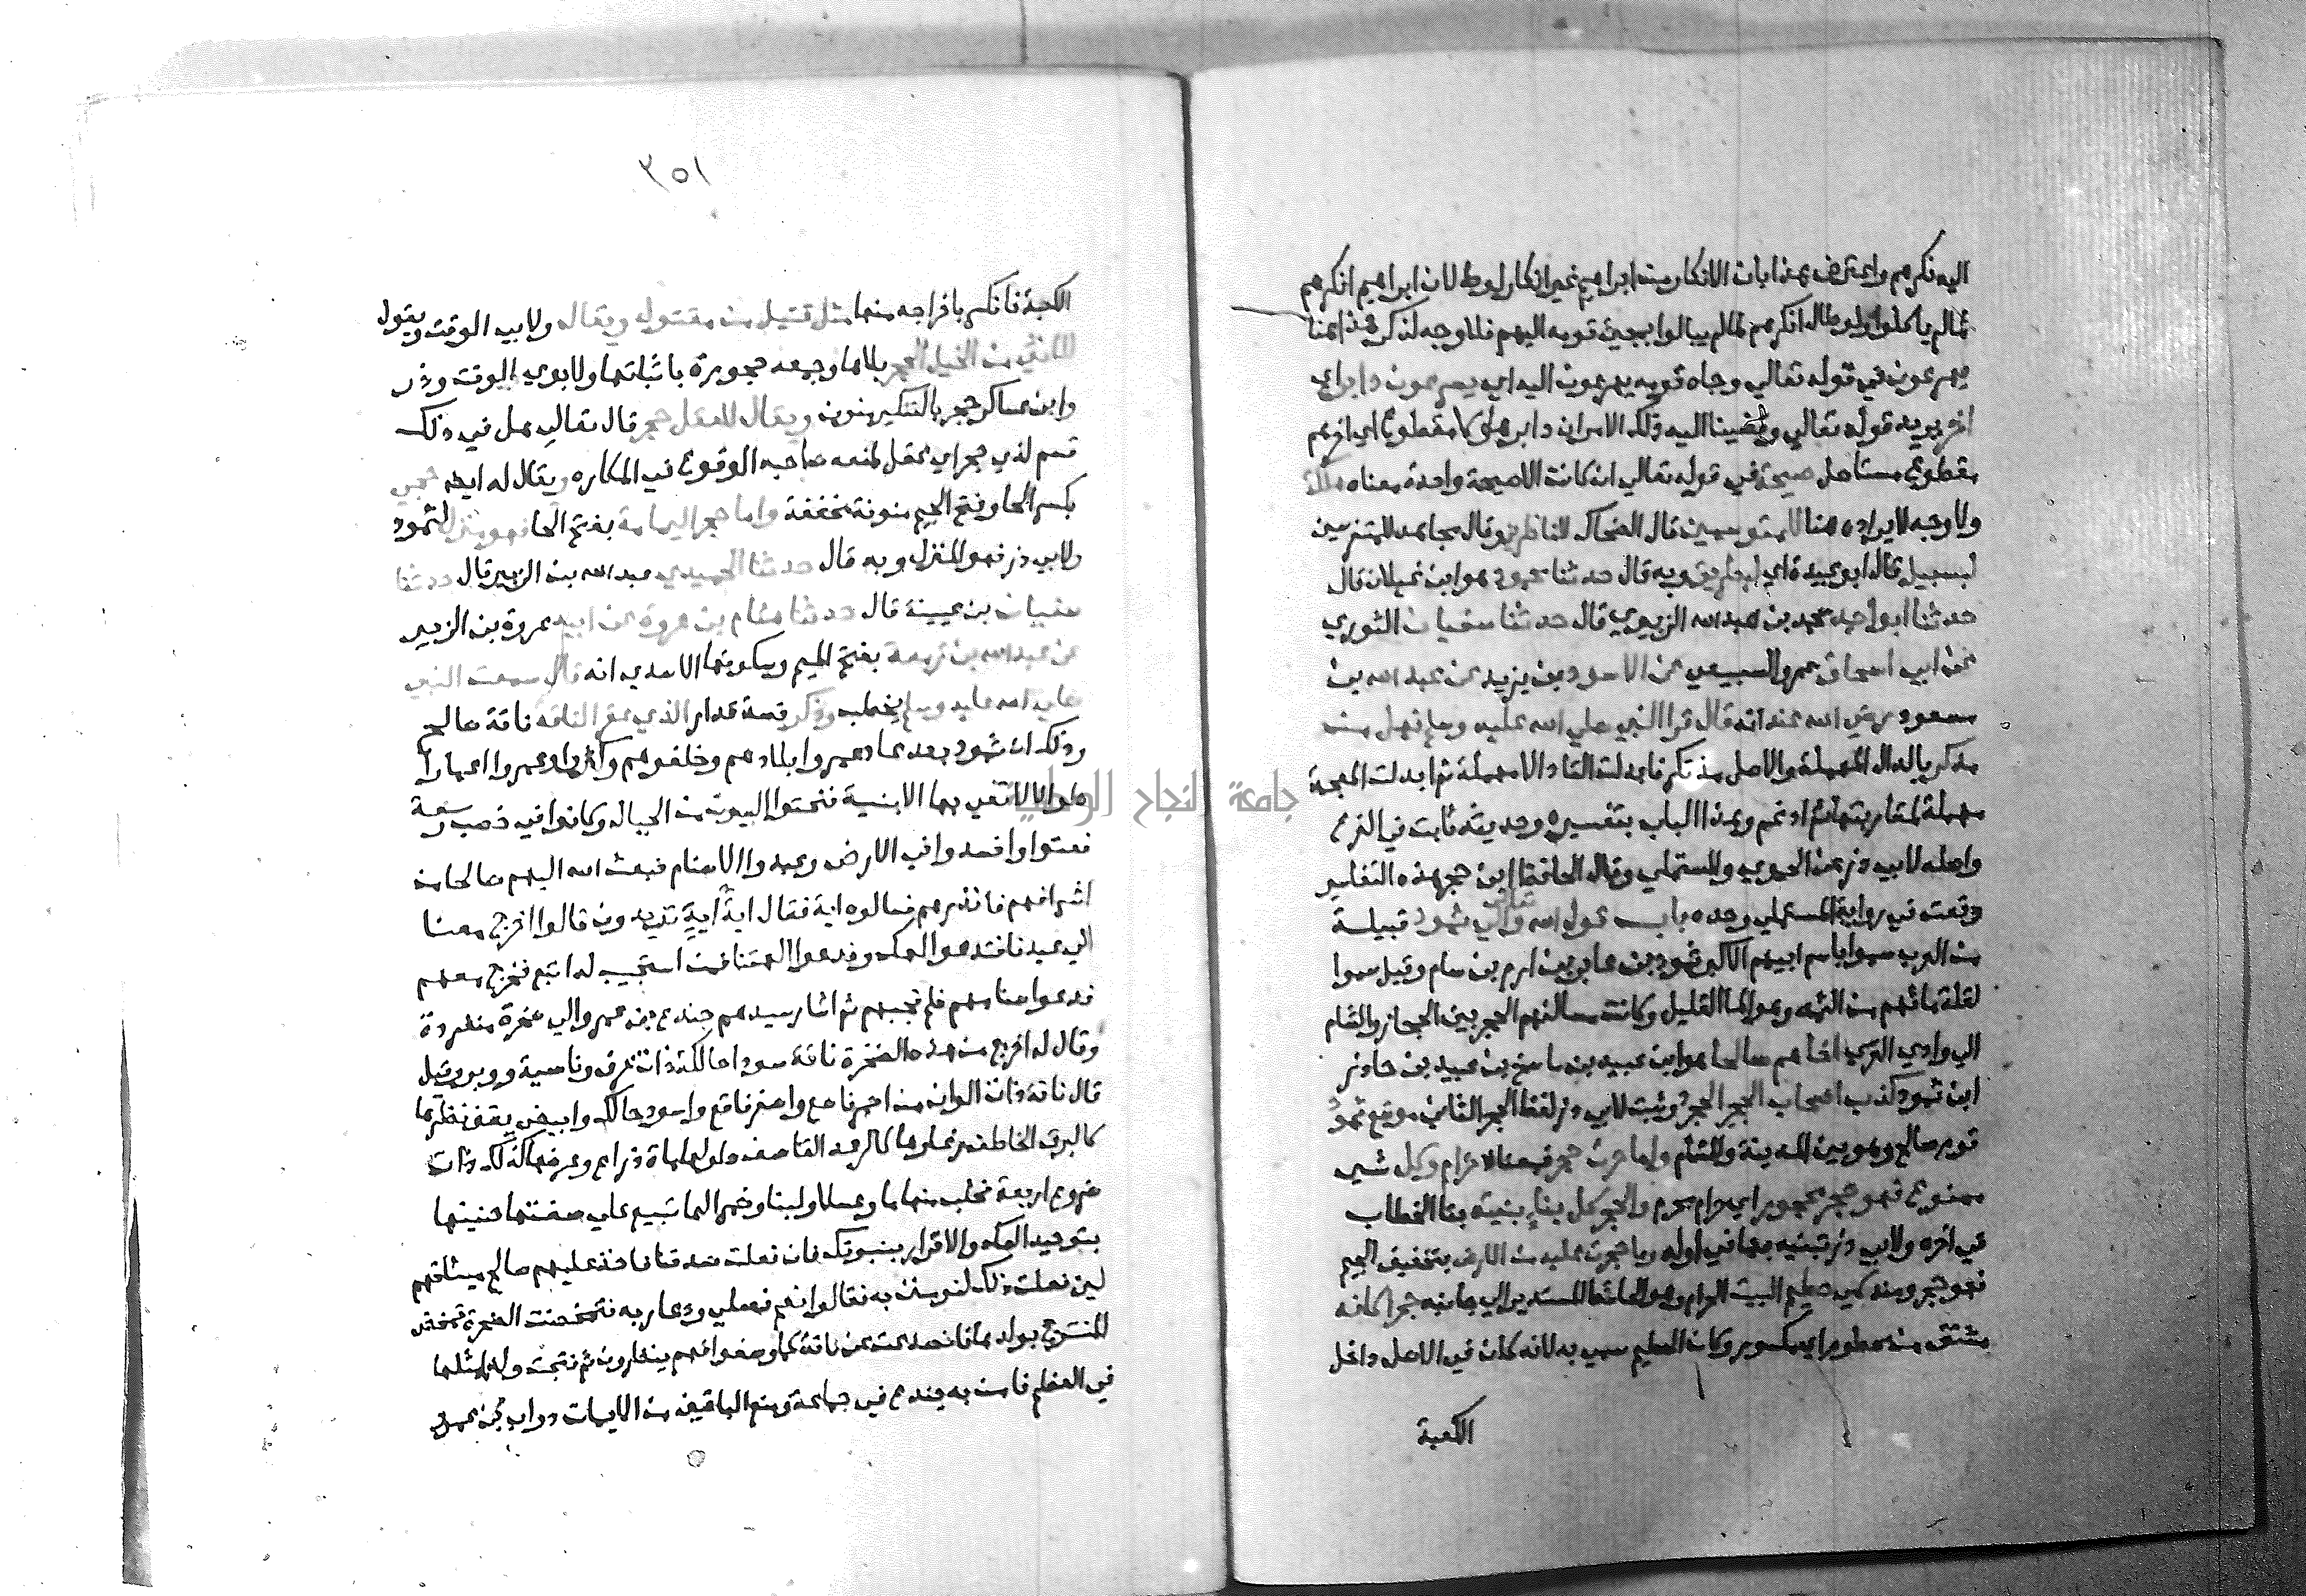 اليه نكرهم واعترض بهذا بان الانكار من ابراهيم غير انكار لوط لان ابراهيم انكرهم
لما لم ياكلوا ولوطا انكرهم لما لم يبالوا بمجئ قومه اليهم فلا وجه لذكر هذا هنا
يهرعون في قوله تعالي وجاه قومه يهرعون اليه اي يسرعون دابر اي
اخر يريد قوله تعالي وقضينا اليه ذلك الامر ان دابر هولا مقطوع اي اخرهم
مقطوع مستاصل صيحة في قوله تعالي ان كانت الاصيحة واحدة معناه هلكة
ولا وجه لايراده هنا للمتوسمين قال الضحاك للناظرين وقال مجاهد للمتفرسين
لبسبيل قال ابو عبيدة اي لبطريق وبه قال حدثنا محمود هو ابن غيلان قال
حدثنا ابو احمد محمد بن عبد الله الزبيري قال حدثنا سفيان الثوري
عن ابي اسحاق عمرو السبيعي عن الاسود بن يزيد عن عبد الله بن
مسعود رضي الله عنه انه قال قرا النبي صلي الله عليه وسلم فهل من
مدكر بالدال المهملة والاصل مذتكر فابدلت التاء دالا مهملة ثم ابدلت المعجمة
مهملة لمقاربتها ثم ادغم وهذا الباب بتفسيره وحديثه ثابت في الفرع
واصله لابي ذر عن الحموي والمستملي وقال الحافظ ابن حجر هذه التفاسير
وقعت في رواية المستملي وحده باب قول الله تعالى والي ثمود قبيلة
من العرب سموا باسم ابيهم الاكبر ثمود بن عابر بن ارم بن سام وقيل سموا
لقلة مائهم من الثمد وهو الما القليل وكانت مساكنهم الحجر بين الحجاز والشام
الي وادي القري اخاهم صالحا هو ابن عبيد بن ماسح بن عبيد بن حاذر
ابن ثمود كذب اصحاب الحجر الحجر وثبت لابي ذر لفظ الحجر الثاني موضع ثمود
قوم صالح وهو بين المدينة والشام واما حرث حجر فمعناه حرام وكل شي
ممنوع فهو حجر محجور اي حرام محرم والحجر كل بناء بنيته بتا الخطاب
في اخره ولابي ذر تبنيه بها في اوله وما حجرت عليه من الارض بتخفيف الجيم
فهو حجر ومنه سمي حطيم البيت الحرام وهو الحائط المستدير الي جانبه حجرا كانه
مشتق من محطوم اي مكسور وكان الحطيم سمي به لانه كان في الاصل داخل
الكعبة
٣٥١
الكعبة فانكسر باخراجه منها مثل قتيل من مقتول ويقال ولابي الوقت ويقول
للانثي من الخيل الحجر بلاها وجمعه حجورة باثباتها ولابوي الوقت وذر
وابن عساكر حجر بالتنكير منون ويقال للعقل حجر قال تعالي هل في ذلك
قسم لذي حجر اي عقل لمنعه صاحبه الوقوع في المكاره ويقال له ايضا حجي
بكسر الحا وفتح الجيم منونة مخففة واما حجر اليمامة بفتح الحا فهو منزل لثمود
ولابي ذر فهو المنزل وبه قال حدثنا الحميدي عبد الله بن الزبير قال حدثنا
سفيان بن عيينة قال حدثنا هشام بن عروة عن ابيه عروة بن الزبير
عن عبد الله بن زمعة بفتح الميم وسكونها الاسدي انه قال سمعت النبي
صلي الله عليه وسلم يخطب وذكر قصة قدار الذي عقر الناقة ناقة صالح
وذلك ان ثمود بعد عاد عمروا بلادهم وخلفوهم وكثروا وعمروا اعمارا
طوالا لا تفي بها الابنية فنحتوا البيوت من الجبال وكانوا في خصب وسعة
فعتوا وافسدوا في الارض وعبدوا الاصنام فبعث الله اليهم صالحا من
اشرافهم فانذرهم فسالوه اية فقال اية اية تريدون قالوا اخرج معنا
الي عيدنا فتدعو الهك وندعو الهتنا فمن استجيب له اتبع فخرج معهم
فدعوا اصنامهم فلم تجبهم ثم اشار سيدهم جندع بن عمرو الي صخرة منفردة
وقال له اخرج من هذه الصخرة ناقة سوداء حالكة ذات عرف وناصية ووبر وقيل
قال ناقة ذات الوان من احمر ناصع واصفر فاقع واسود حالك وابيض يقق نظرها
كالبرق الخاطف رغاوها كالرعد القاصف طولها ماة ذراع وعرضها كذلك ذات
ضروع اربعة نحلب منها ما وعسلا ولبنا وخمرا لها تبيع علي صفتها حنينها
بتوحيد الهك والاقرار بنبوتك فان فعلت صدقنا فاخذ عليهم صالح ميثاقهم
لين فعلت ذلك لتومنن به فقالوا نعم فصلي ودعا ربه فتمخضت الصخرة تمخض
المنتوج بولدها فانصدعت عن ناقة كما وصفوا وهم ينظرون ثم نتجت ولدا مثلها
في العظم فامن به جندع في جماعة ومنع الباقين من الايمان دواب بن عمرو
جامعة النجاح الوطنية